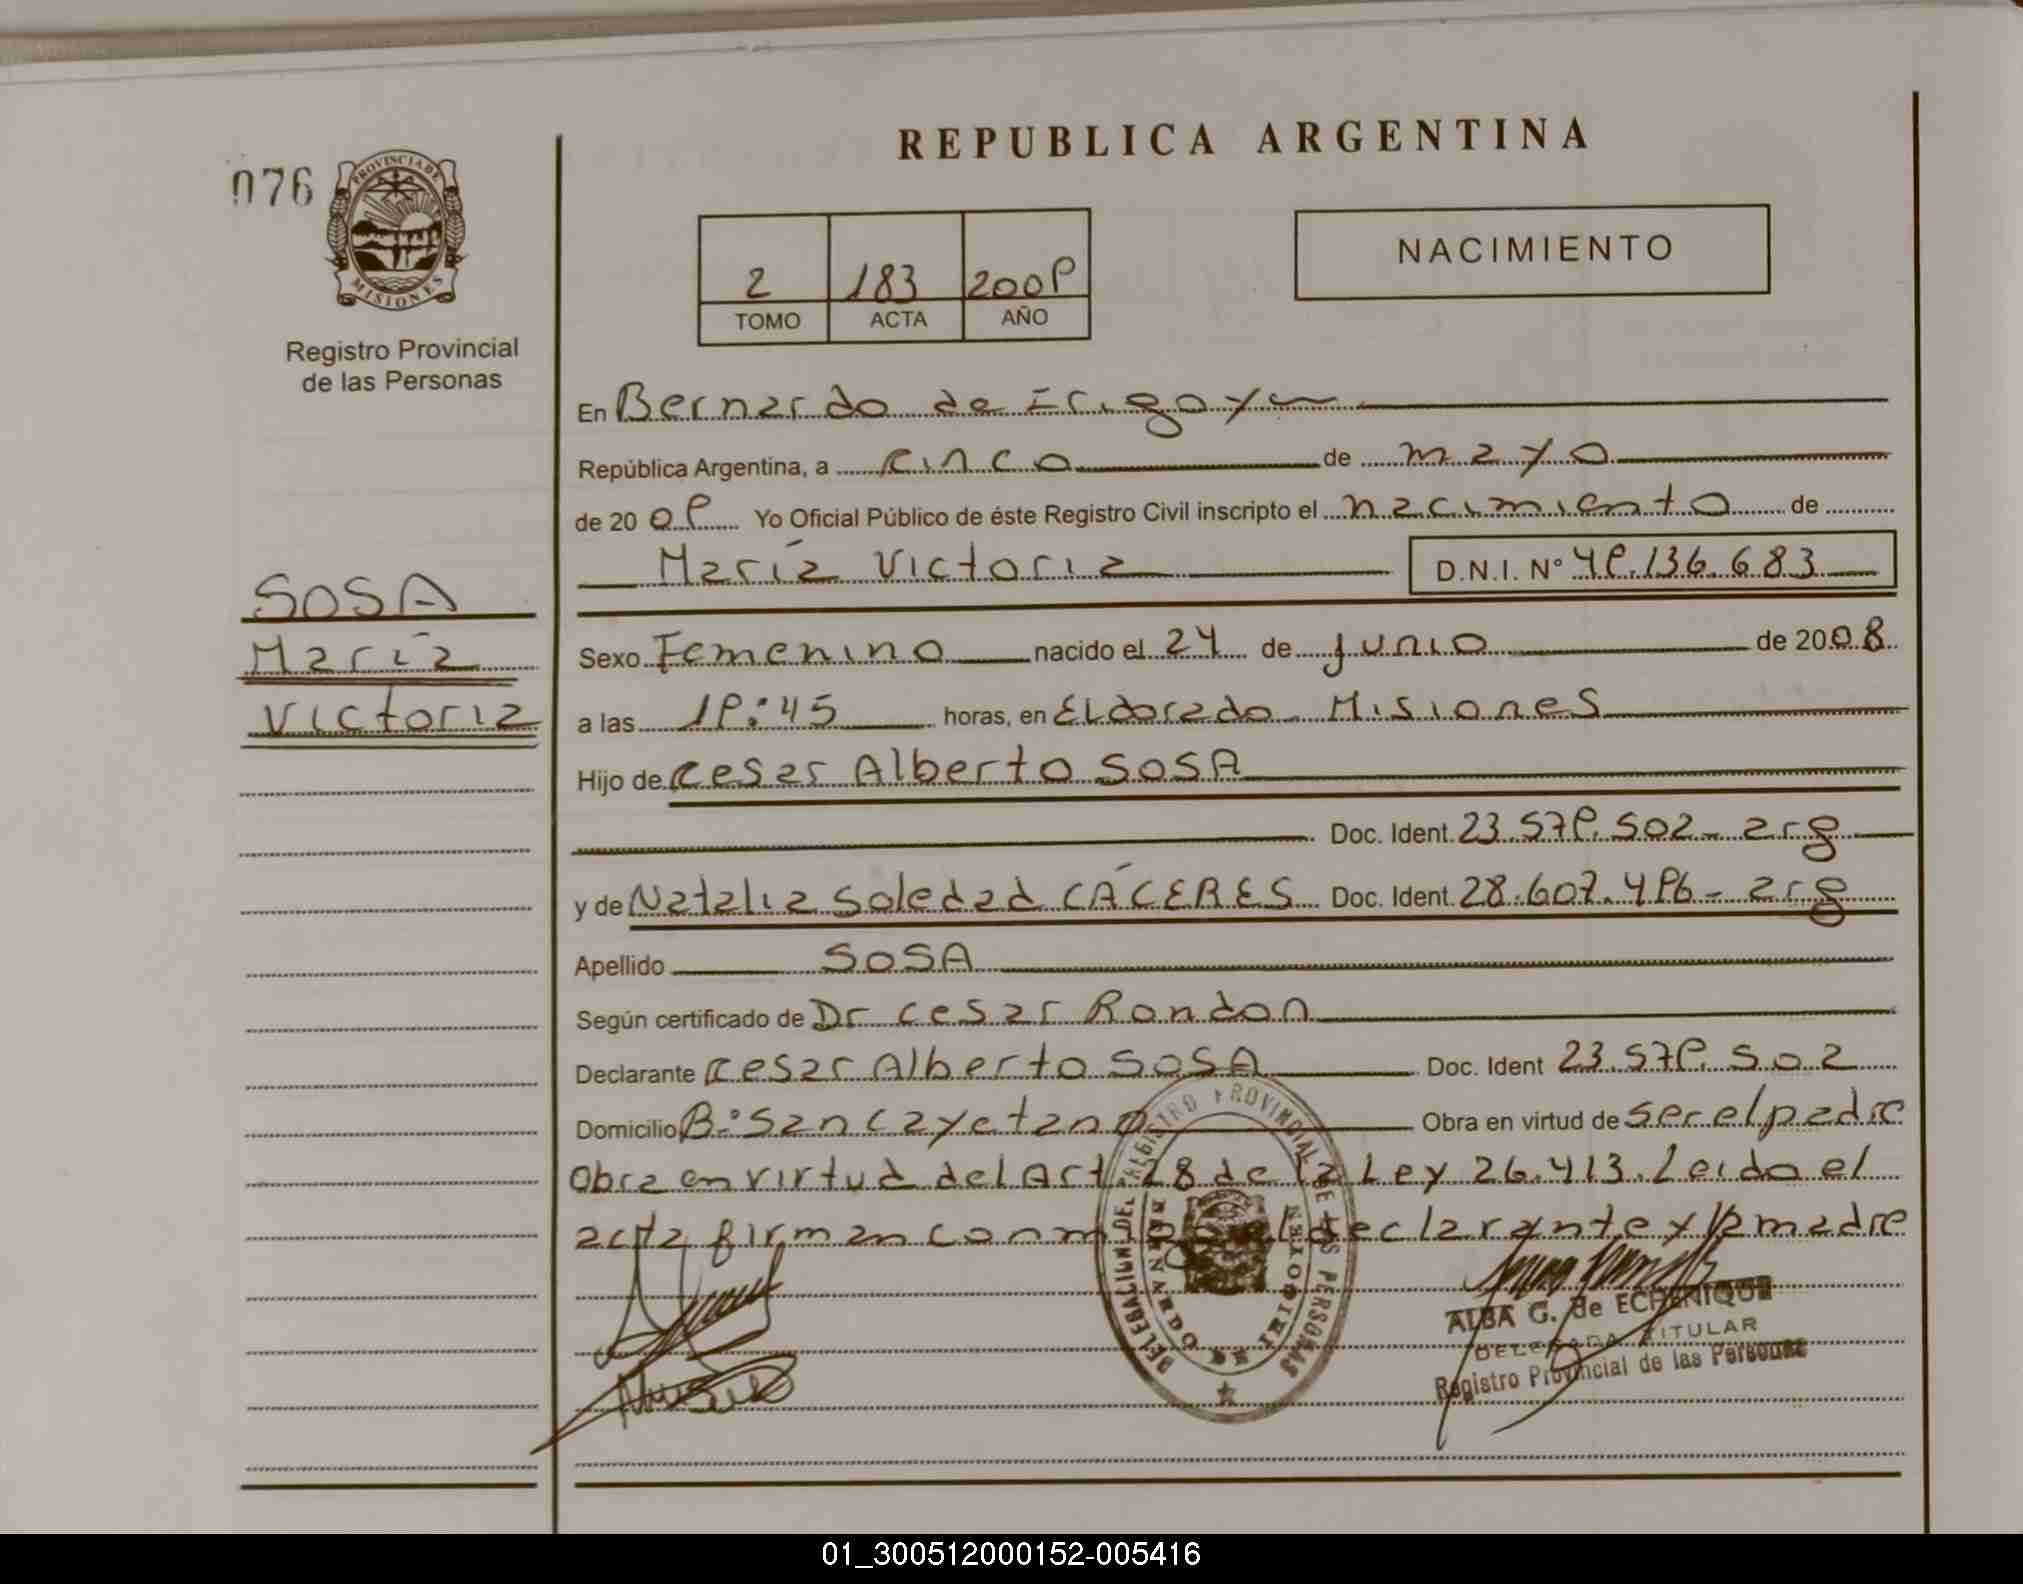 REPUBLICA ARGENTINA
076
PROVINCIA DE
MISIONES
Registro Provincial
de las Personas
NACIMIENTO
2 183 2009
TOMO ACTA AÑO
En Bernardo de Irigoyen
República Argentina, a cinco de mayo
de 20 09 Yo Oficial Público de éste Registro Civil inscripto el nacimiento de
María Victoria D.N.I. Nº 49.136.683
SOSA
María
Victoria
Sexo Femenino nacido el 24 de junio de 2008
a las 19:45 horas, en Eldorado Misiones
Hijo de Cesar Alberto SOSA
Doc. Ident. 23.579.502 - arg
y de Natalia Soledad CÁCERES Doc. Ident. 28.607.496 - arg
Apellido SOSA
Según certificado de Dr Cesar Rondon
Declarante Cesar Alberto SOSA Doc. Ident 23.579.502
Domicilio Bº San Cayetano Obra en virtud de ser el padre
Obra en virtud del Art. 28 de la Ley 26.413. Leido el
acta firman conmigo el declarante y la madre
DELEGACION DEL REGISTRO PROVINCIAL DE LAS PERSONAS
BERNARDO DE IRIGOYEN
ALBA G. de ECHENIQUE
DELEGADA TITULAR
Registro Provincial de las Personas
01_300512000152-005416